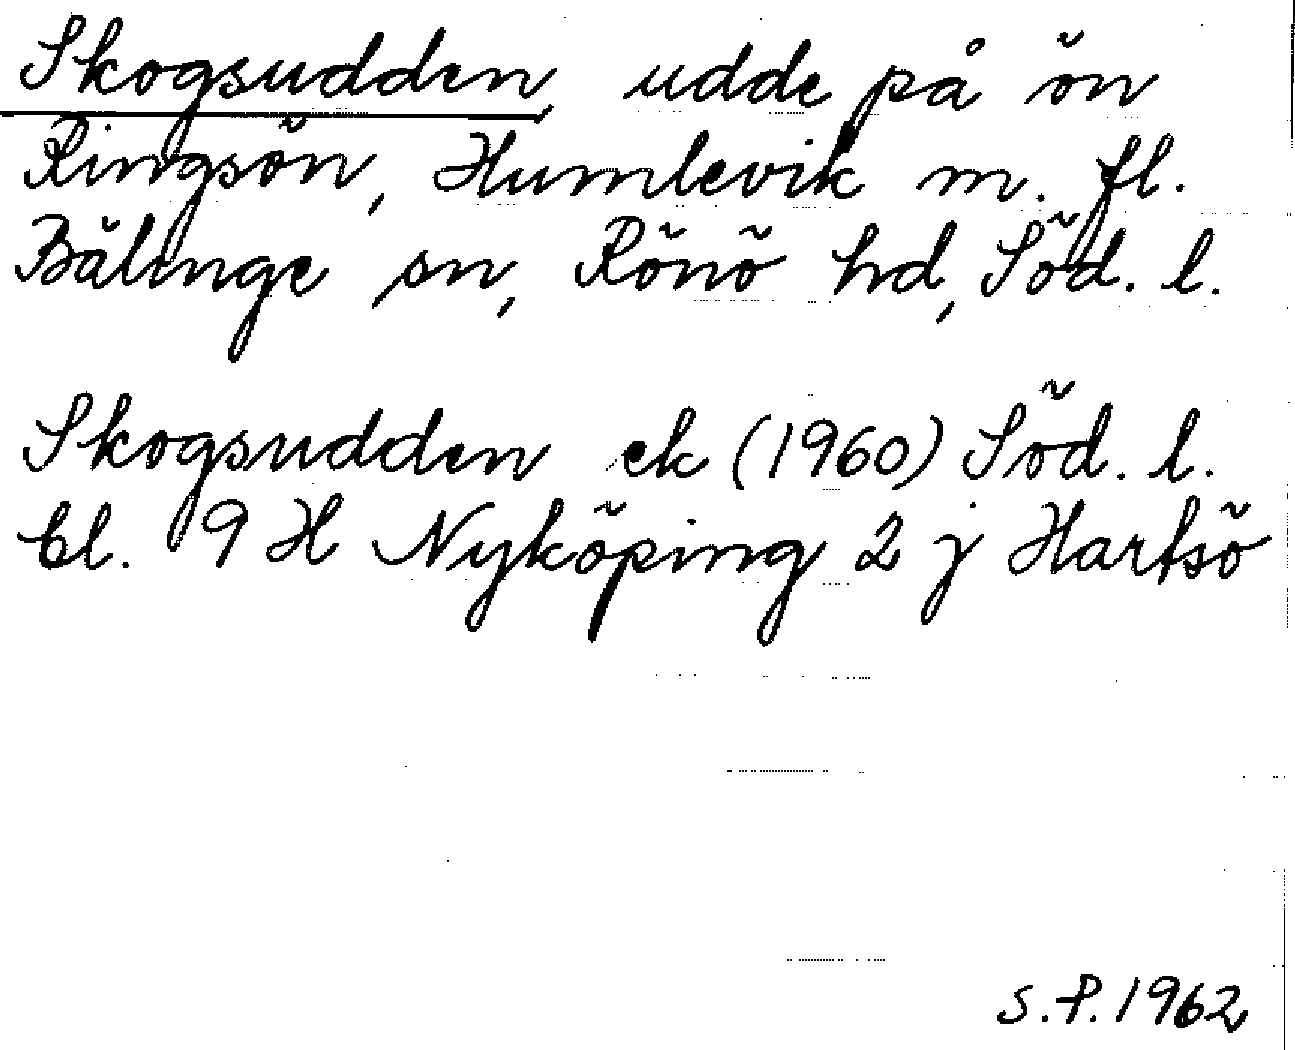 Skogsudden, udde på ön
Ringsön, Humlevik m. fl.
Bälinge sn, Rönö hd, Söd. l.
Skogsudden ek (1960) Söd. l.
bl. 9 H Nyköping 2 j Hartsö
S.P. 1962